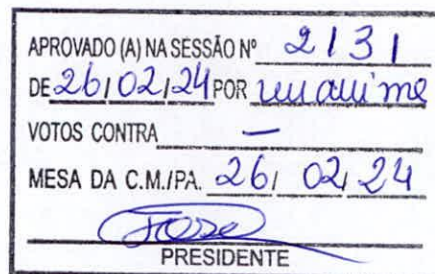 APROVADO (A) NA SESSÃO Nº 2131
DE 26/02/24 POR unanime
VOTOS CONTRA —
MESA DA C.M./PA. 26/ 02/ 24
PRESIDENTE